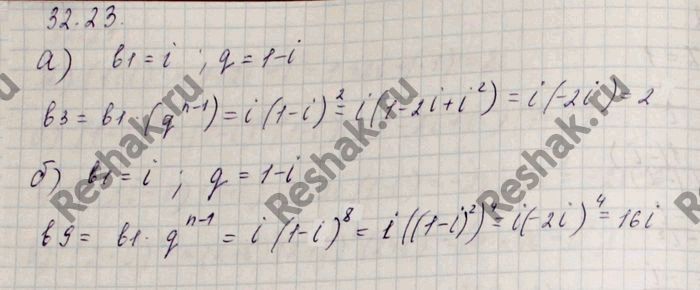 32.23.
а) в1 = i ; q = 1-i
в3 = в1 (qⁿ⁻¹) = i (1-i)² = i (1-2i+i²) = i (-2i) = 2
б) в1 = i ; q = 1-i
в9 = в1 · qⁿ⁻¹ = i (1-i)⁸ = i ((1-i)²)⁴ = i(-2i)⁴ = 16i
Reshak.ru
Reshak.ru
Reshak.ru